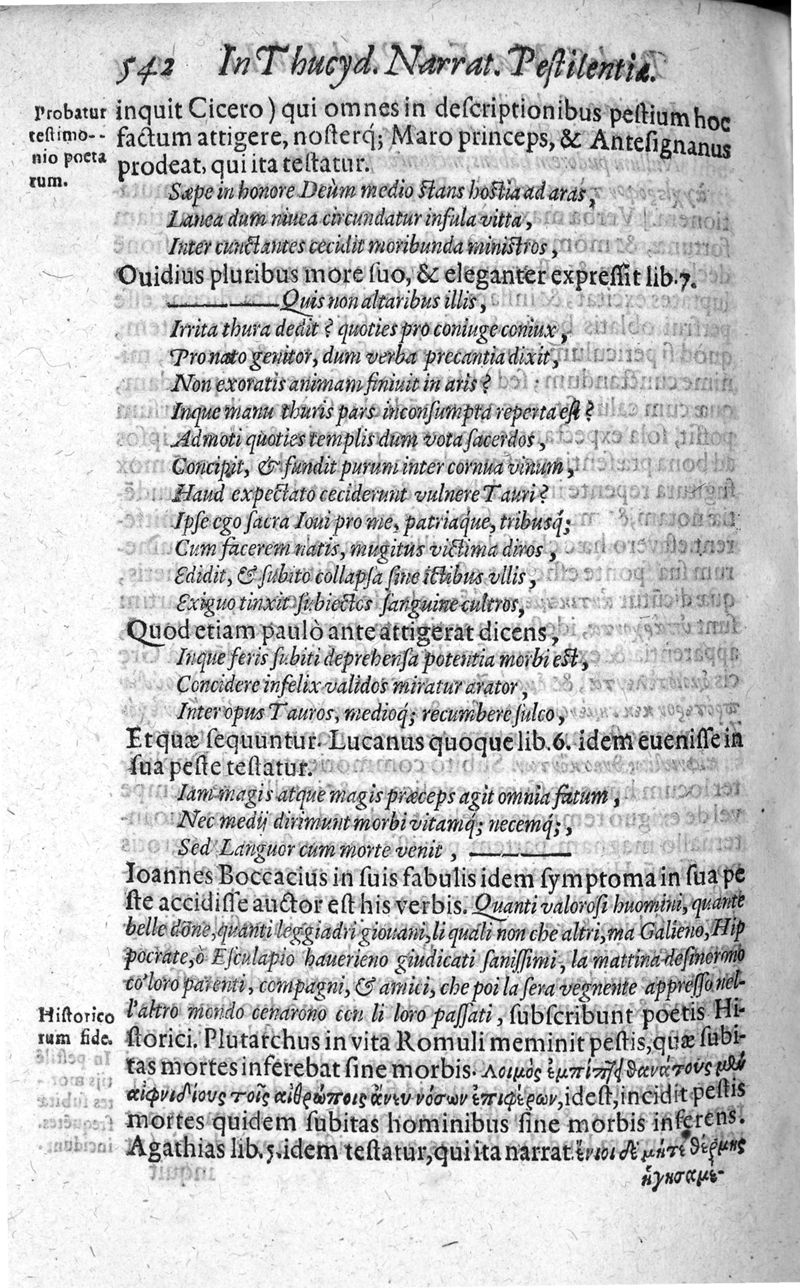 542 In Thucyd. Narrat. Pestilentiæ.
Probatur
testimo--
nio poeta
rum.
inquit Cicero) qui omnes in descriptionibus pestium hoc
factum attigere, nosterq́; Maro princeps, & Antesignanus
prodeat, qui ita testatur.
Sæpe in honore Deûm medio stans hostia ad aras,
Lanea dum niuea circundatur infula vitta,
Inter cunctantes cecidit moribunda ministros,
Ouidius pluribus more suo, & eleganter expressit lib.7.
———Quis non altaribus illis,
Irrita thura dedit? quoties pro coniuge coniux,
Pro nato genitor, dum verba precantia dixit,
Non exoratis animam finiuit in aris?
Inque manu thuris pars inconsumpta reperta est?
Admoti quoties templis dum vota sacerdos,
Concipit, & fundit purum inter cornua vinum,
Haud expectato ceciderunt vulnere Tauri?
Ipse ego sacra Ioui pro me, patriaque, tribusq́;
Cum facerem natis, mugitus victima diros,
Edidit, & subito collapsa sine ictibus vllis,
Exiguo tinxit subiectos sanguine cultros,
Quod etiam paulò ante attigerat dicens,
Inque feris subiti deprehensa potentia morbi est,
Concidere infelix validos miratur arator,
Inter opus Tauros, medioq́; recumbere sulco,
Et quæ sequuntur. Lucanus quoque lib.6. idem euenisse in
sua peste testatur.
Iam magis atque magis præceps agit omnia fatum,
Nec medij dirimunt morbi vitamq́; necemq́;,
Sed Languor cum morte venit, ———
Ioannes Boccacius in suis fabulis idem symptoma in sua pe
ste accidisse auctor est his verbis. Quanti valorosi huomini, quante
belle dõne, quanti leggiadri giouani, li quali non che altri, ma Galieno, Hip
pocrate, ò Esculapio hauerieno giudicati sanissimi, la mattina desinorono
co' loro parenti, compagni, & amici, che poi la sera vegnente appresso nel-
l'altro mondo cenarono con li loro passati, subscribunt poetis Hi-
Historico
rum fide.
storici. Plutarchus in vita Romuli meminit pestis, quæ subi-
tas mortes inferebat sine morbis. Λοιμὸς ἐμπίπτει θανάτους μὲν
αἰφνιδίους τοῖς ἀνθρώποις ἄνευ νόσων ἐπιφέρων, idest, incidit pestis
mortes quidem subitas hominibus sine morbis inferens.
Agathias lib.5. idem testatur, qui ita narrat ἔνιοι δὲ μήτε θέρμης
ἡγησαμε-